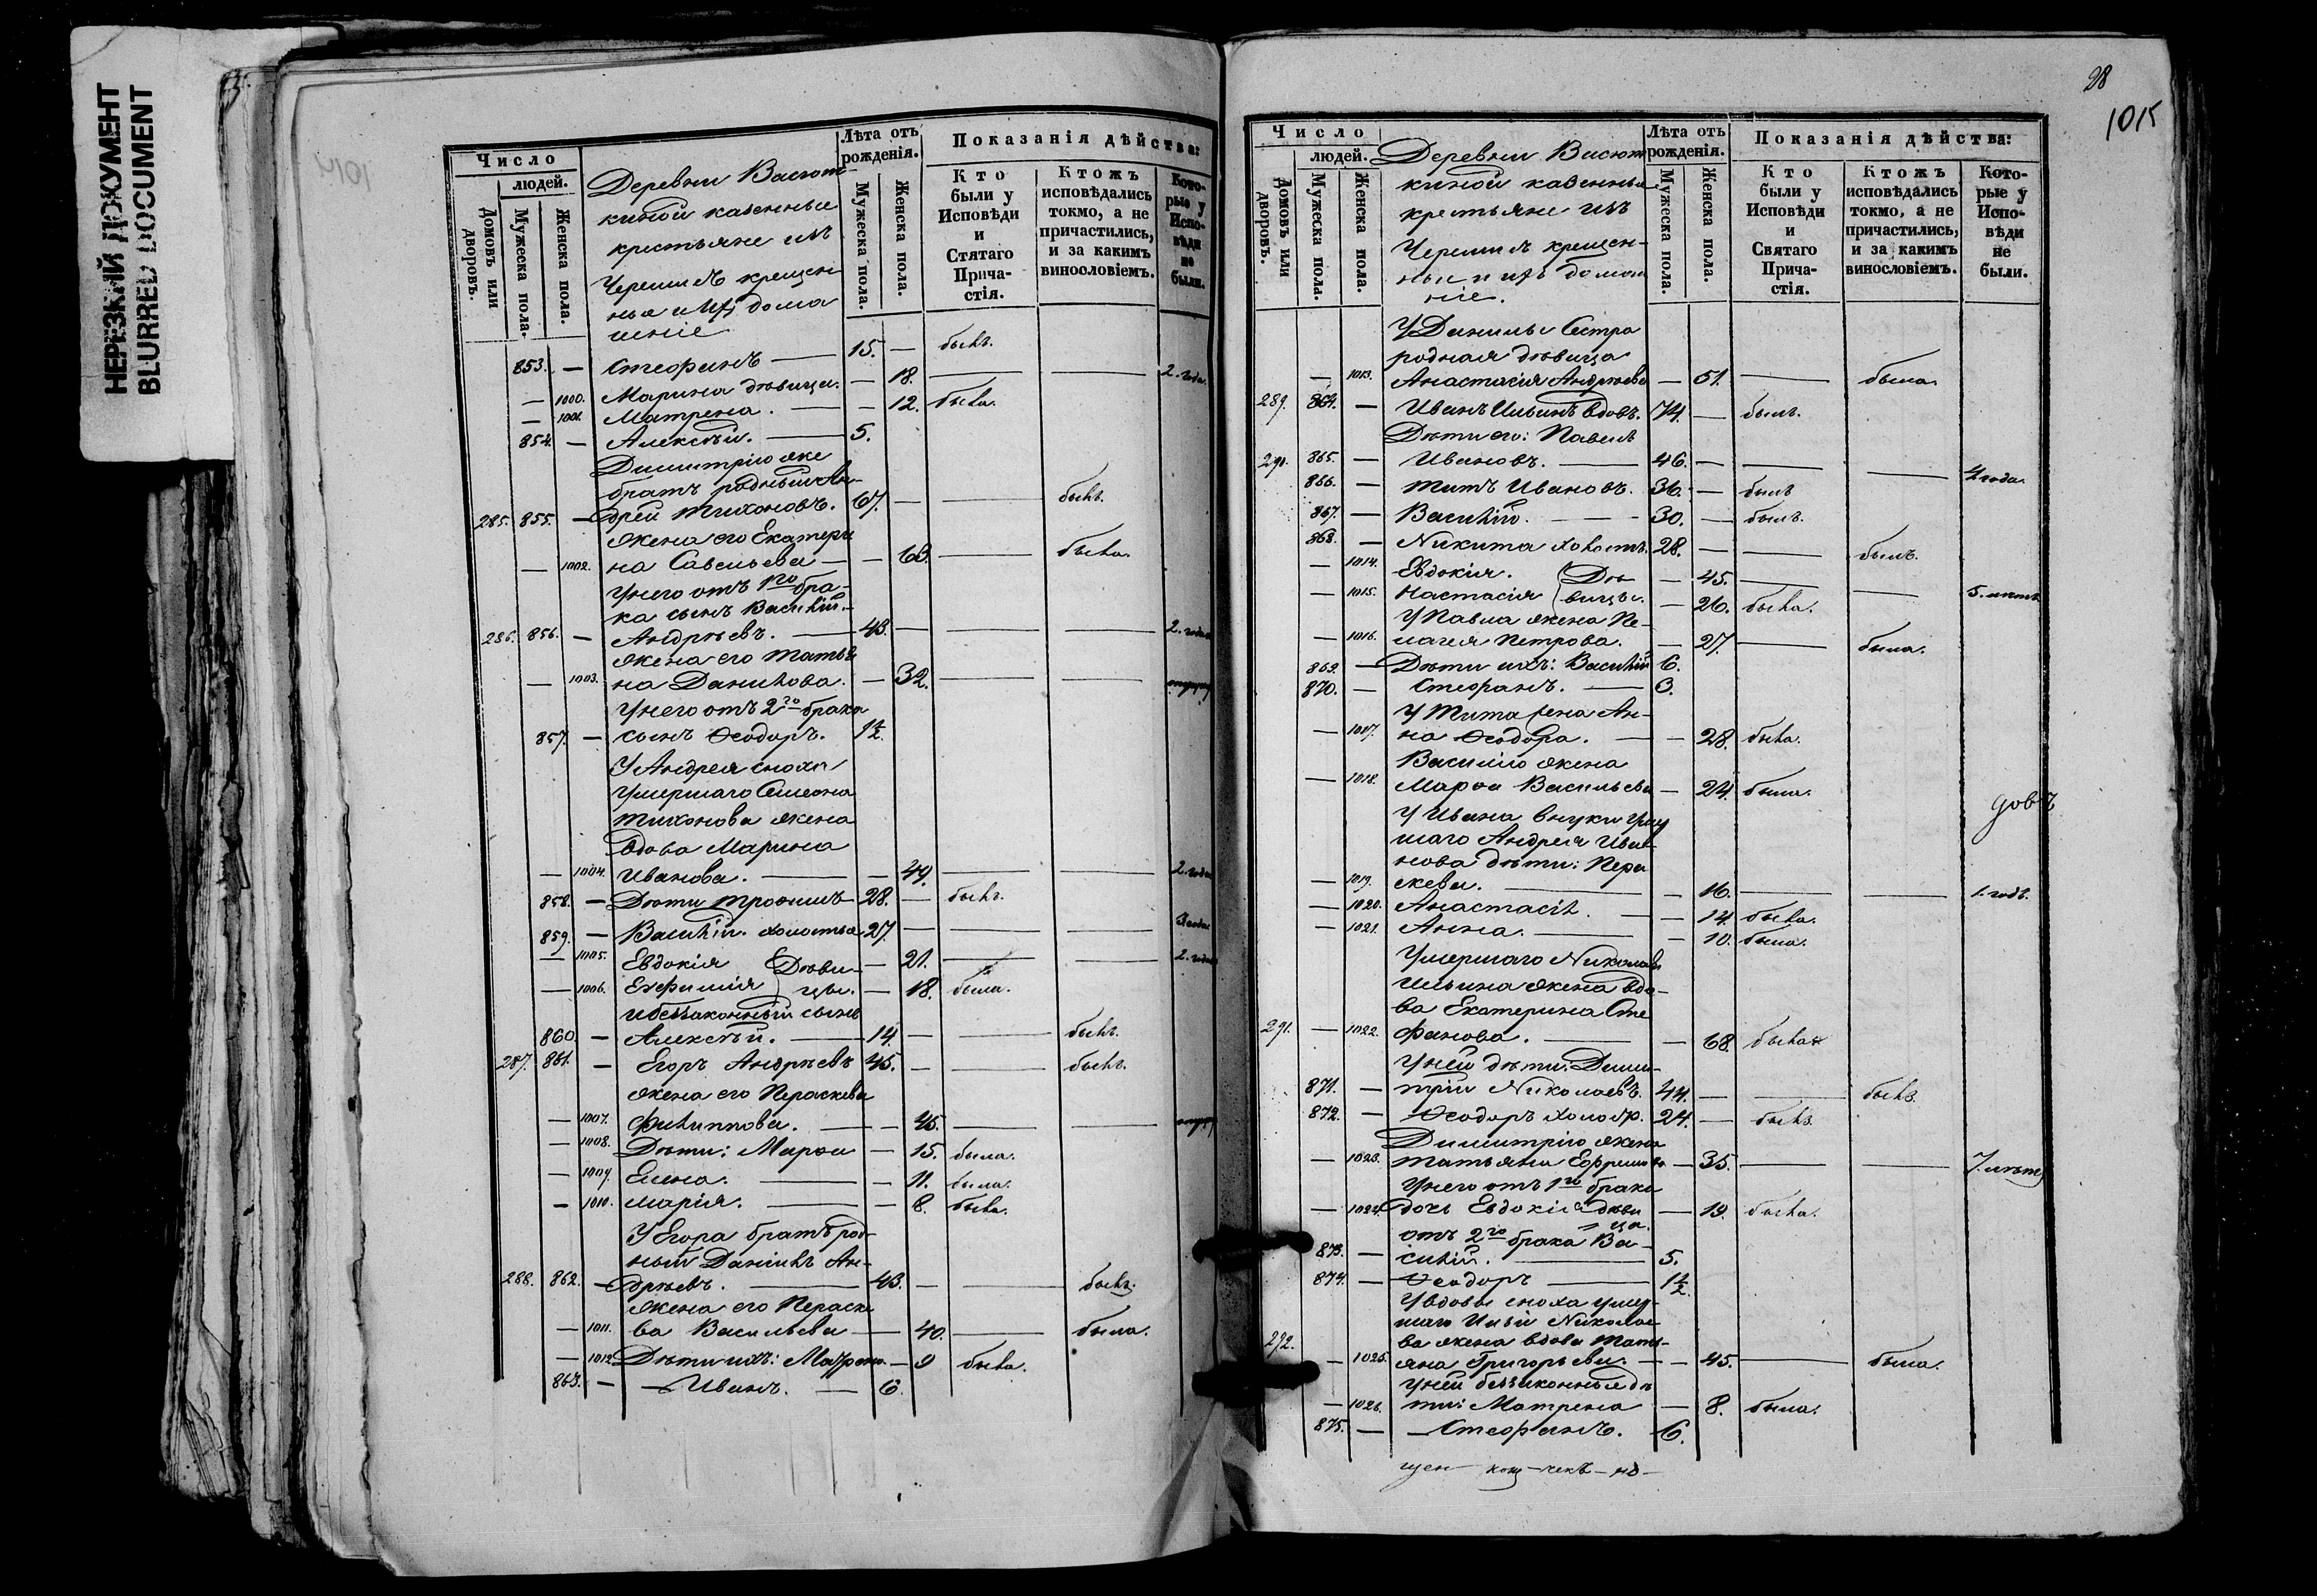 НЕРЕЗКИЙ ДОКУМЕНТ
BLURRED DOCUMENT
Число
людей.
Домовъ или дворовъ.
Мужеска пола.
Женска пола.
Деревни Васют-
киной казенные
крестьяне изъ
Черемисъ крещен
ные и ихъ дома
шніе
Лѣта отъ рожденія.
Мужеска пола.
Женска пола.
Показанія дѣйства:
Кто были у Исповѣди и Стятаго Прича-стія.
Ктожъ исповѣдались токмо, а не причастились, и за какимъ винословіемъ.
Кото-рые у Испо-вѣди не были.
853. — Стефанъ — 15. — былъ.
— 1000. Марина дѣвица. — 18. — — 2. года.
— 1001. Матрена. — — 12. была.
854. — Алексѣй. — 5.
Димитрію же
братъ родный Ан-
285. 855. — дрей Тихоновъ. 67. — — былъ.
жена его Екатери
— 1002. на Савельева — — 63. — была.
У него отъ 1го бра-
ка сынъ Василій
286. 856. — Андрѣевъ. — 43. — — — 2. года
жена его Татья
— 1003. на Данилова. — 32. — —
У него отъ 2го брака
857. — сынъ Ѳеодоръ. 1/2.
У Андрея сноха
умершаго Симеона
Тихонова жена
вдова Марина
— 1004. Иванова. — — 49. — — 2. года
858. — Дѣти Трофимъ 28. — былъ.
859. — Василій холостые 27. — — — 3 года
— 1005. Евдокія Дѣви- — 21. — — 2. года
— 1006. Ефимія цы. — 18. была.
и беззаконный сынъ
860. — Алексѣй. — 14. — — былъ.
287. 861. — Егоръ Андрѣевъ 45. — — былъ.
жена его Параскева
— 1007. Филиппова. — — 45. — —
— 1008. Дѣти: Марѳа — 15. была.
— 1009. Елена. — — 11. была.
— 1010. Марія. — — 8. была.
У Егора братъ род-
ный Даніилъ Ан-
288. 862. — дрѣевъ. — 43. — — былъ.
жена его Параске
— 1011. ва Васильева — 40. — была.
— 1012. Дѣти ихъ: Матрена — 9 была.
863. — — Иванъ. — 6.
28
1015
Число
людей.
Домовъ или дворовъ.
Мужеска пола.
Женска пола.
Деревни Васют
киной казенные
крестьяне изъ
Черемисъ крещен-
ные и ихъ домаш
ніе.
Лѣта отъ рожденія.
Мужеска пола.
Женска пола.
Показанія дѣйства:
Кто были у Исповѣди и Святаго Прича-стія.
Ктожъ исповѣдались токмо, а не причастились, и за какимъ винословіемъ.
Кото-рые у Испо-вѣди не были.
У Данилы Сестра
родная дѣвица
— 1013. Анастасія Андрѣева — 51. — была.
289. 864. — Иванъ Ильинъ вдовъ. 74. — былъ.
Дѣти его: Павелъ
290. 865. — Ивановъ. — 46. — — — 4 года.
866. — Титъ Ивановъ. 36. — былъ
867. — Василій. — 30. — былъ.
868. — Никита холостъ. 28. — — былъ.
— 1014. Евдокія. Дѣ- — 45. — — 5. лѣтъ
— 1015. Настасія вицы. — 26. была.
У Павла жена Пе-
— 1016. лагея Петрова. — 27. — была.
869. — Дѣти ихъ: Василій 6.
870. — Стефанъ. — 3.
У Тита жена Ан-
— 1017. на Ѳеодора. — — 28. была.
Василію жена
— 1018. Марѳа Васильева — 24. была.
довъ
У Ивана внуки умер
шаго Андрея Ива
нова дѣти: Пара
— 1019. скева. — — 16. — — 1. годъ.
— 1020. Анастасія. — — 14. была.
— 1021. Анна. — — 10. была.
Умершаго Николая
Ильина жена вдо-
ва Екатерина Сте
291. — 1022. фанова. — — 68. была
У ней дѣти: Дими-
871. — трій Николаевъ. 44. — — былъ.
872. — Ѳеодоръ холостъ. 24. — былъ.
Димитрію жена
— 1023. Татьяна Ефремова — 35. — — 7. лѣтъ
У него отъ 1го брака
— 1024. дочь Евдокія дѣви — 19. была.
ца.
отъ 2го брака Ва-
873. — силій. — 5.
874. — Ѳеодоръ — 1/2
У вдовы сноха умер-
шаго Ильи Николае-
292. ва жена вдова Тать-
— 1025. яна Григорьева. — — 45. — была.
У ней беззаконные дѣ
— 1026. ти: Матрена — 8. была.
875. — — Стефанъ. 6.